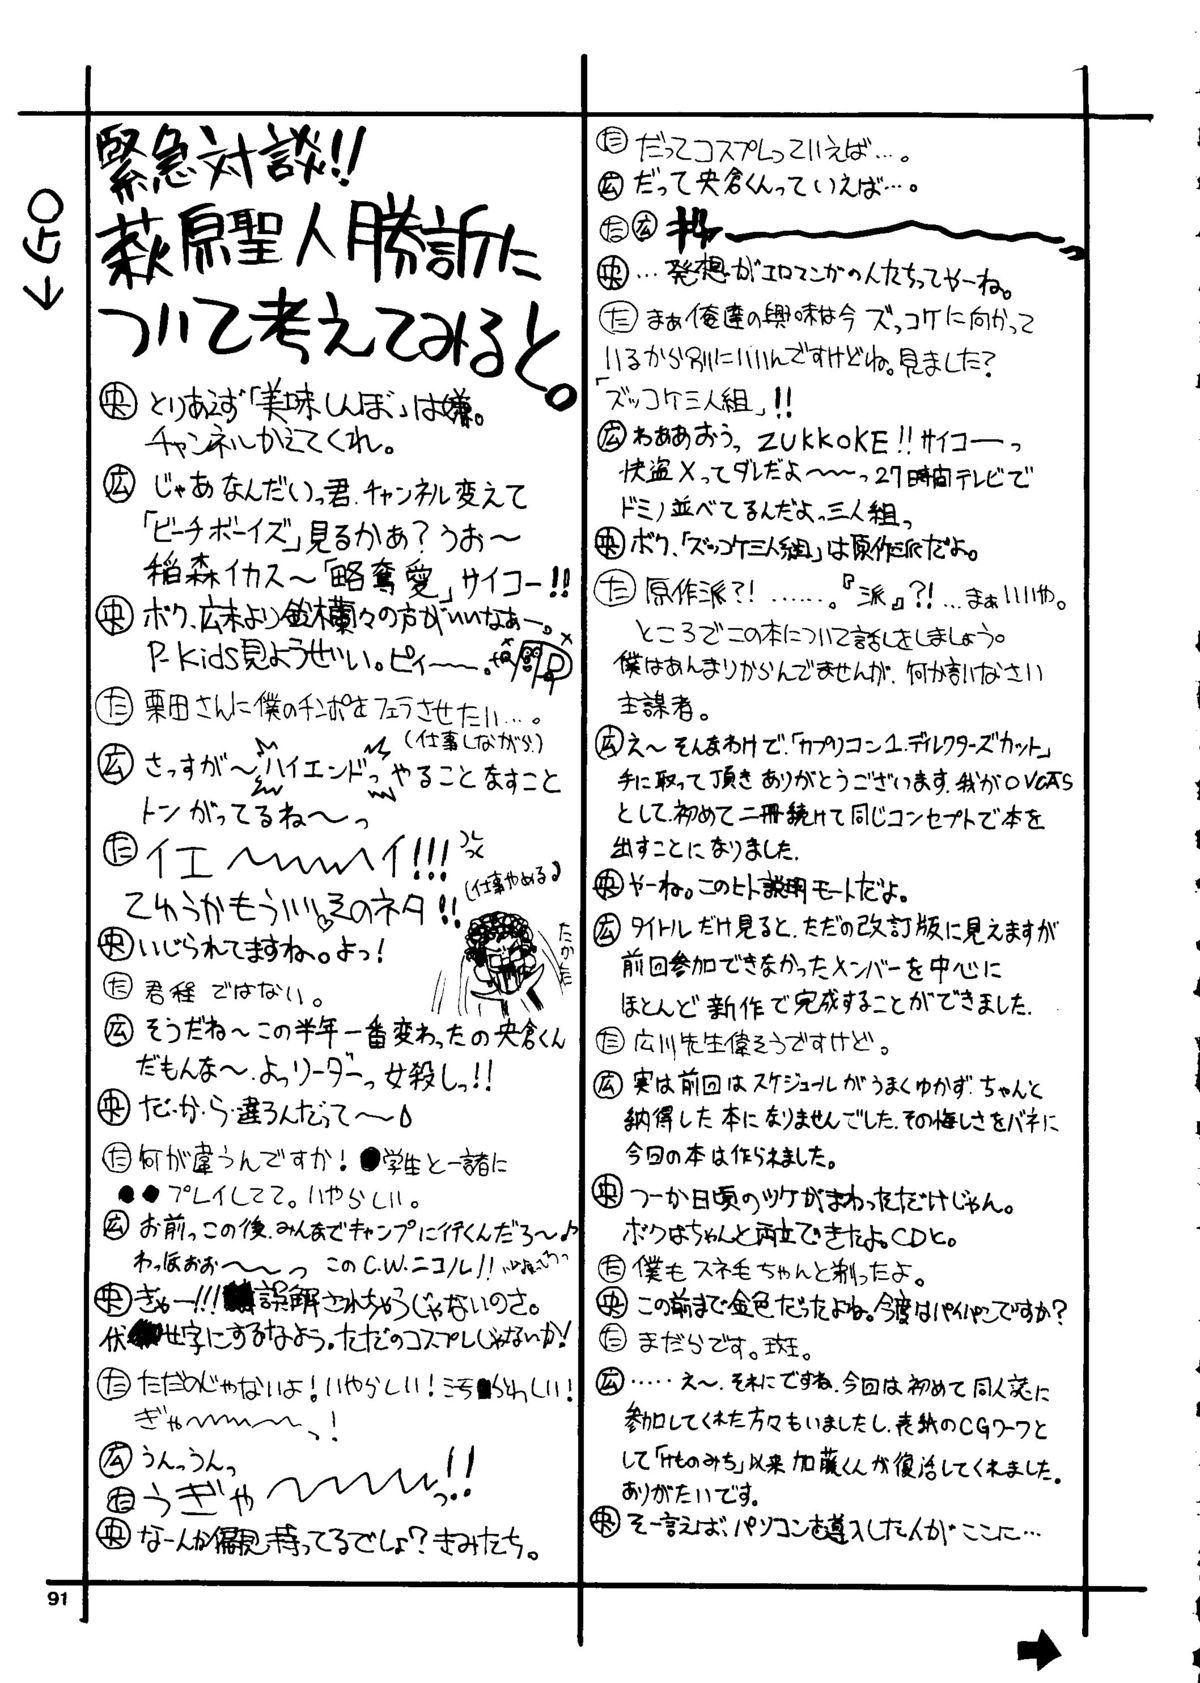 緊急対談!!
萩原聖人勝訴に
ついて考えてみると。
央 とりあえず「美味しんぼ」は嫌。
チャンネルかえてくれ。
広 じゃあなんだいっ君、チャンネル変えて
「ビーチボーイズ」見るかぁ?うお〜
稲森イカス〜「略奪愛」サイコー!!
央 ボク、広末より鈴木蘭々の方がいいなぁー。
P-Kids見ようぜい。ピィ——。
た 栗田さんに僕のチンポをフェラさせたい…。
(仕事しながら)
広 さっすが〜ハイエンドっやることなすこと
トンがってるね〜っ
た イエ〜〜〜イ!!!
てゆうかもういいっそのネタ!!
(仕事やめる)
たかた
央 いじられてますね。よっ!
た 君程ではない。
広 そうだね〜この半年一番変わったの央倉くん
だもんな〜、よっリーダーっ女殺しっ!!
央 だ・か・ら・違ろんだって〜♪
た 何が違うんですか!●学生と一諸に
●●プレイしてて。いやらしい。
広 お前っこの後、みんなでキャンプに行くんだろ〜♪
わっほぉぉ〜〜っ このC.W.ニコル!!
央 ぎゃー!!!誤解されちゃうじゃないのさ。
伏せ字にするなよう。ただのコスプレじゃないか!
た ただのじゃないよ!いやらしい!
ぎゃ〜〜〜っ!
広 うんっうんっ
た うぎゃ〜〜〜っ!!
央 なーんか偏見持ってるでしょ?きみたち。
た だってコスプレっていえば…。
広 だって央倉くんっていえば…。
た 広
央 …発想がエロマンガの人たちってやーね。
た まぁ俺達の興味は今ズッコケに向かって
いるから別にいいんですけどね。見ました?
「ズッコケ三人組」!!
広 わぁあおうっ ZUKKOKE!!サイコーーっ
快盗Xってダレだよ〜〜っ27時間テレビで
ドミノ並べてるんだよっ三人組っ
央 ボク、「ズッコケ三人組」は原作派だよ。
た 原作派?!……。『派』?!…まぁいいや。
ところでこの本について話しをしましょう。
僕はあんまりからんでませんが、何か言いなさい
主謀者。
広 え〜そんなわけで、「カプリコン1.ディレクターズカット」
手に取って頂きありがとうございます。我がOVCASと
して、初めて二冊続けて同じコンセプトで本を
出すことになりました。
央 やーね。このヒト説明モードだよ。
広 タイトルだけ見ると、ただの改訂版に見えますが
前回参加できなかったメンバーを中心に
ほとんど新作で完成することができました。
た 広川先生偉そうですけど。
広 実は前回はスケジュールがうまくゆかず、ちゃんと
納得した本になりませんでした。その悔しさをバネに
今回の本は作られました。
央 つーか日頃のツケがまわっただけじゃん。
ボクはちゃんと両立できたよ。CDと。
た 僕もスネ毛ちゃんと剃ったよ。
央 この前まで金色だったよね。今度はパイパンですか?
た まだらです。斑。
広 ……え〜、それにですね、今回は初めて同人誌に
参加してくれた方々もいましたし、表紙のCGワークと
して「けものみち」以来加藤くんが復活してくれました。
ありがたいです。
央 そー言えば、パソコンを導入した人がここに…
91